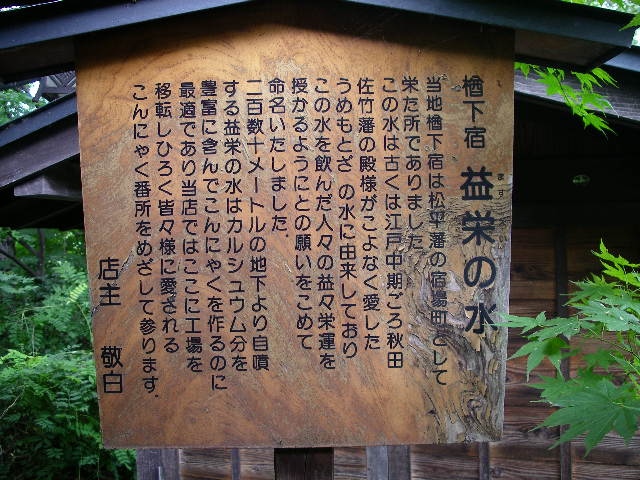 楢下宿 益栄の水
ます
当地楢下宿は松平藩の宿場町として
栄た所でありました
この水は古くは江戸中期ごろ秋田
佐竹藩の殿様がこよなく愛した
うめもとざ の水に由来しており
この水を飲んだ人々の益々栄運を
授かるようにとの願いをこめて
命名いたしました.
二百数十メートルの地下より自噴
する益栄の水はカルシュウム分を
豊富に含んでこんにゃくを作るのに
最適であり当店ではここに工場を
移転しひろく皆々様に愛される
こんにゃく番所をめざして参ります.
店主 敬白